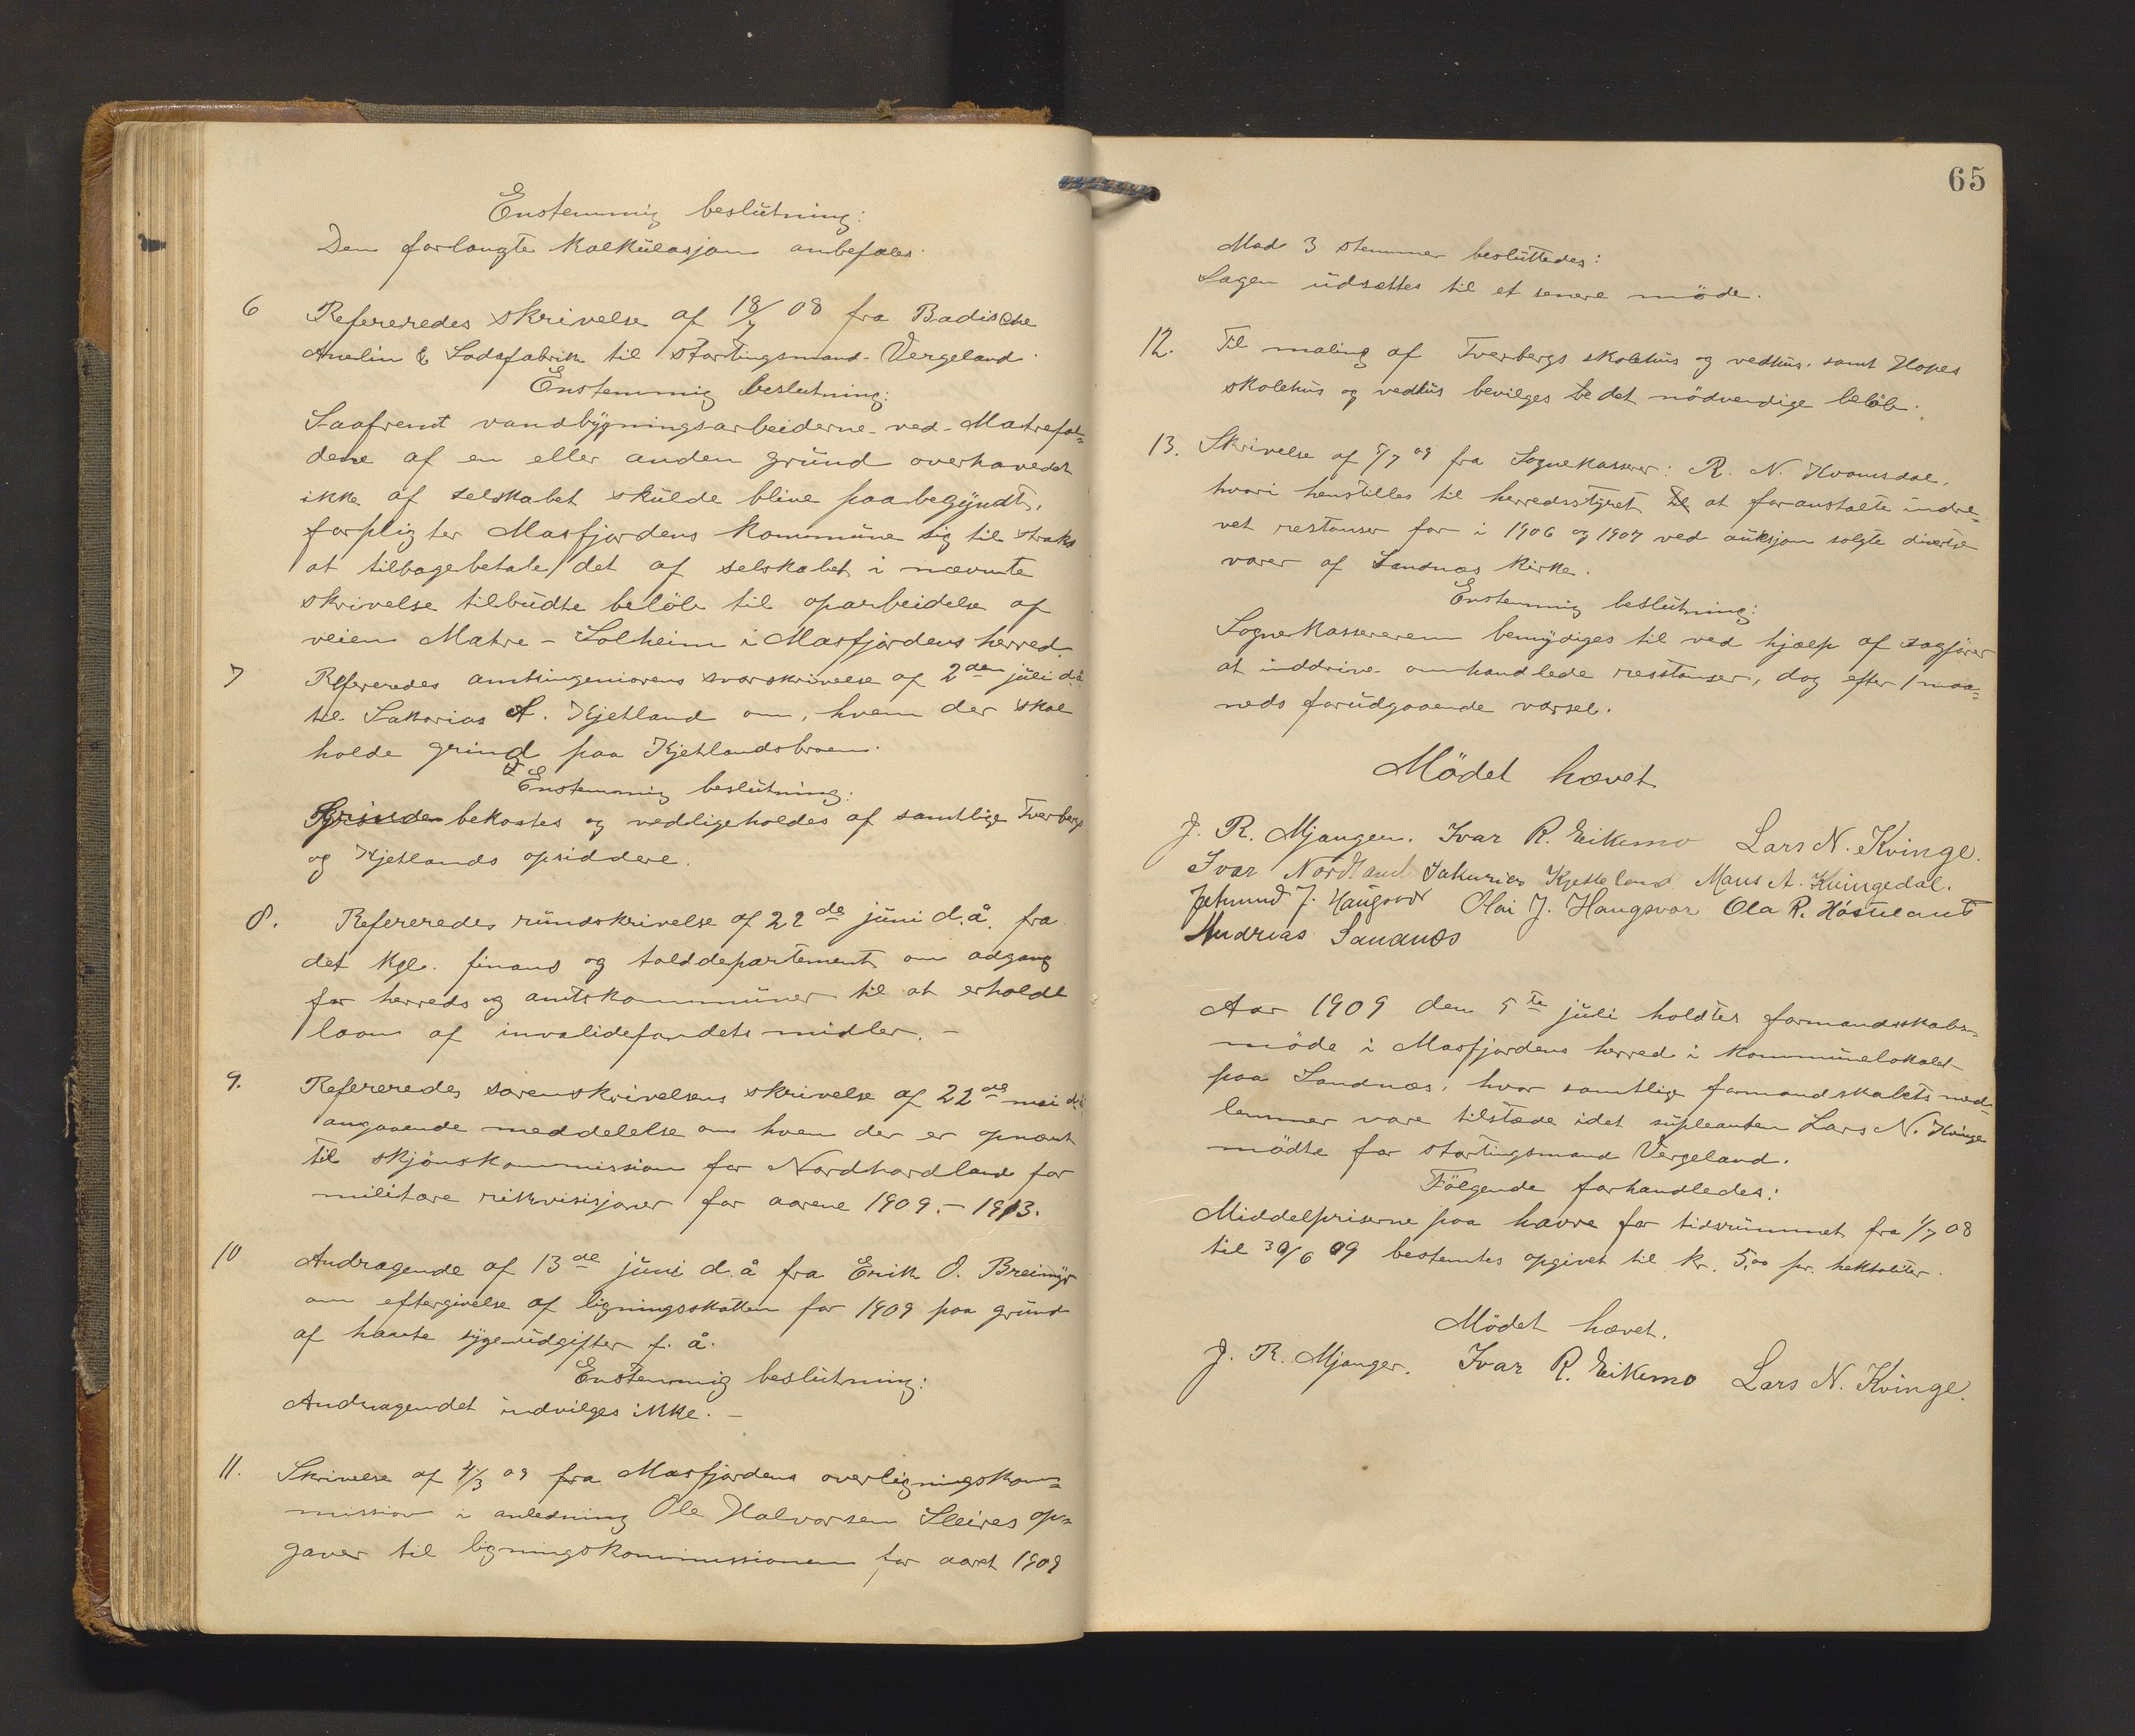 Enstemmig beslutning:
Den forlangte kalkulasjon anbefales.
6 Refereredes skrivelse af 18/7 08 fra Badische
Anelin & Sodafabrik til stortingsmand Vergeland.
Enstemmig beslutning:
Saafremt vandbygningsarbeiderne ved Matrefal-
dene af en eller anden grund overhovedet
ikke af selskabet skulde blive paabegyndt,
forpligter Masfjordens kommune sig til straks
at tilbagebetale det af selskabet i nævnte
skrivelse tilbudte beløb til oparbeidelse af
veien Matre - Solheim i Masfjordens herred.
7 Refereredes amtsingeniørens svarskrivelse af 2den juli d.å.
til Sakarias A. Kjetland om, hvem der skal
holde grind paa Kjetlandsbroen.
Enstemmig beslutning:
Grinden bekostes og vedligeholdes af samtlige Tverbergs
og Kjetlands opsiddere.
8. Refereredes rundskrivelse af 22de juni d.å. fra
det kgl. finans og tolddepartement om adgang
for herreds og amtskommuner til at erholde
laan af invalidefondets midler. -
9. Refereredes sorenskrivelsens skrivelse af 22de mai d.å.
angaaende meddelelse om hvem der er opnævnt
til skjønskommission for Nordhordland for
militære rekvisisjoner for aarene 1909.- 1913.
10 Andragende af 13de juni d.å fra Erik O. Breimyr
om eftergivelse af ligningsskatten for 1909 paa grund
af havte sygeudgifter f. å.
Enstemmig beslutning:
Andragendet indvilges ikke. -
11. Skrivelse af 4/3 09 fra Masfjordens overligningskom-
mission i anledning Ole Halvorsen Sleires op-
gaver til ligningskommissionen for aaret 1909
65
Med 3 stemmer besluttedes:
Sagen udsættes til et senere møde.
12. Til maling af Tverbergs skolehus og vedhus, samt Hopes
skolehus og vedhus bevilges det nødvendige beløb.
13. Skrivelse af 5/7 09 fra Sognekasserer: R. N. Kvamsdal,
hvori henstilles til herredsstyret at foranstalte inddre-
vet restanser for i 1906 og 1907 ved auksjon solgte diverse
varer af Sandnæs kirke.
Enstemmig beslutning:
Sognekassereren bemydiges til ved hjælp af sagfører
at inddrive omhandlede resstanser, dog efter 1 maa-
neds forudgaaende varsel.
Mødet hævet
J. R. Mjanger. Ivar R. Eikemo Lars N. Kvinge.
Ivar Nordland Sakarias Kjetteland Mons A. Kvingedal.
Jetmund J. Haugsvær Olai J. Haugsvær Ola R. Hosteland
Andreas Sandnæs
Aar 1909 den 5te juli holdtes formandsskabs-
møde i Masfjordens herred i kommunelokalet
paa Sandnæs, hvor samtlige formandskabets med-
lemmer vare tilstæde idet supleanten Lars N. Kvinge
mødte for stortingsmand Vergeland.
Følgende forhandledes:
Middelpriserne paa havre for tidsrummet fra 1/7 08
til 30/6 09 bestemtes opgivet til kr. 5,00 pr. hektoliter.
Mødet hævet.
J. R. Mjanger. Ivar R. Eikemo Lars N. Kvinge.